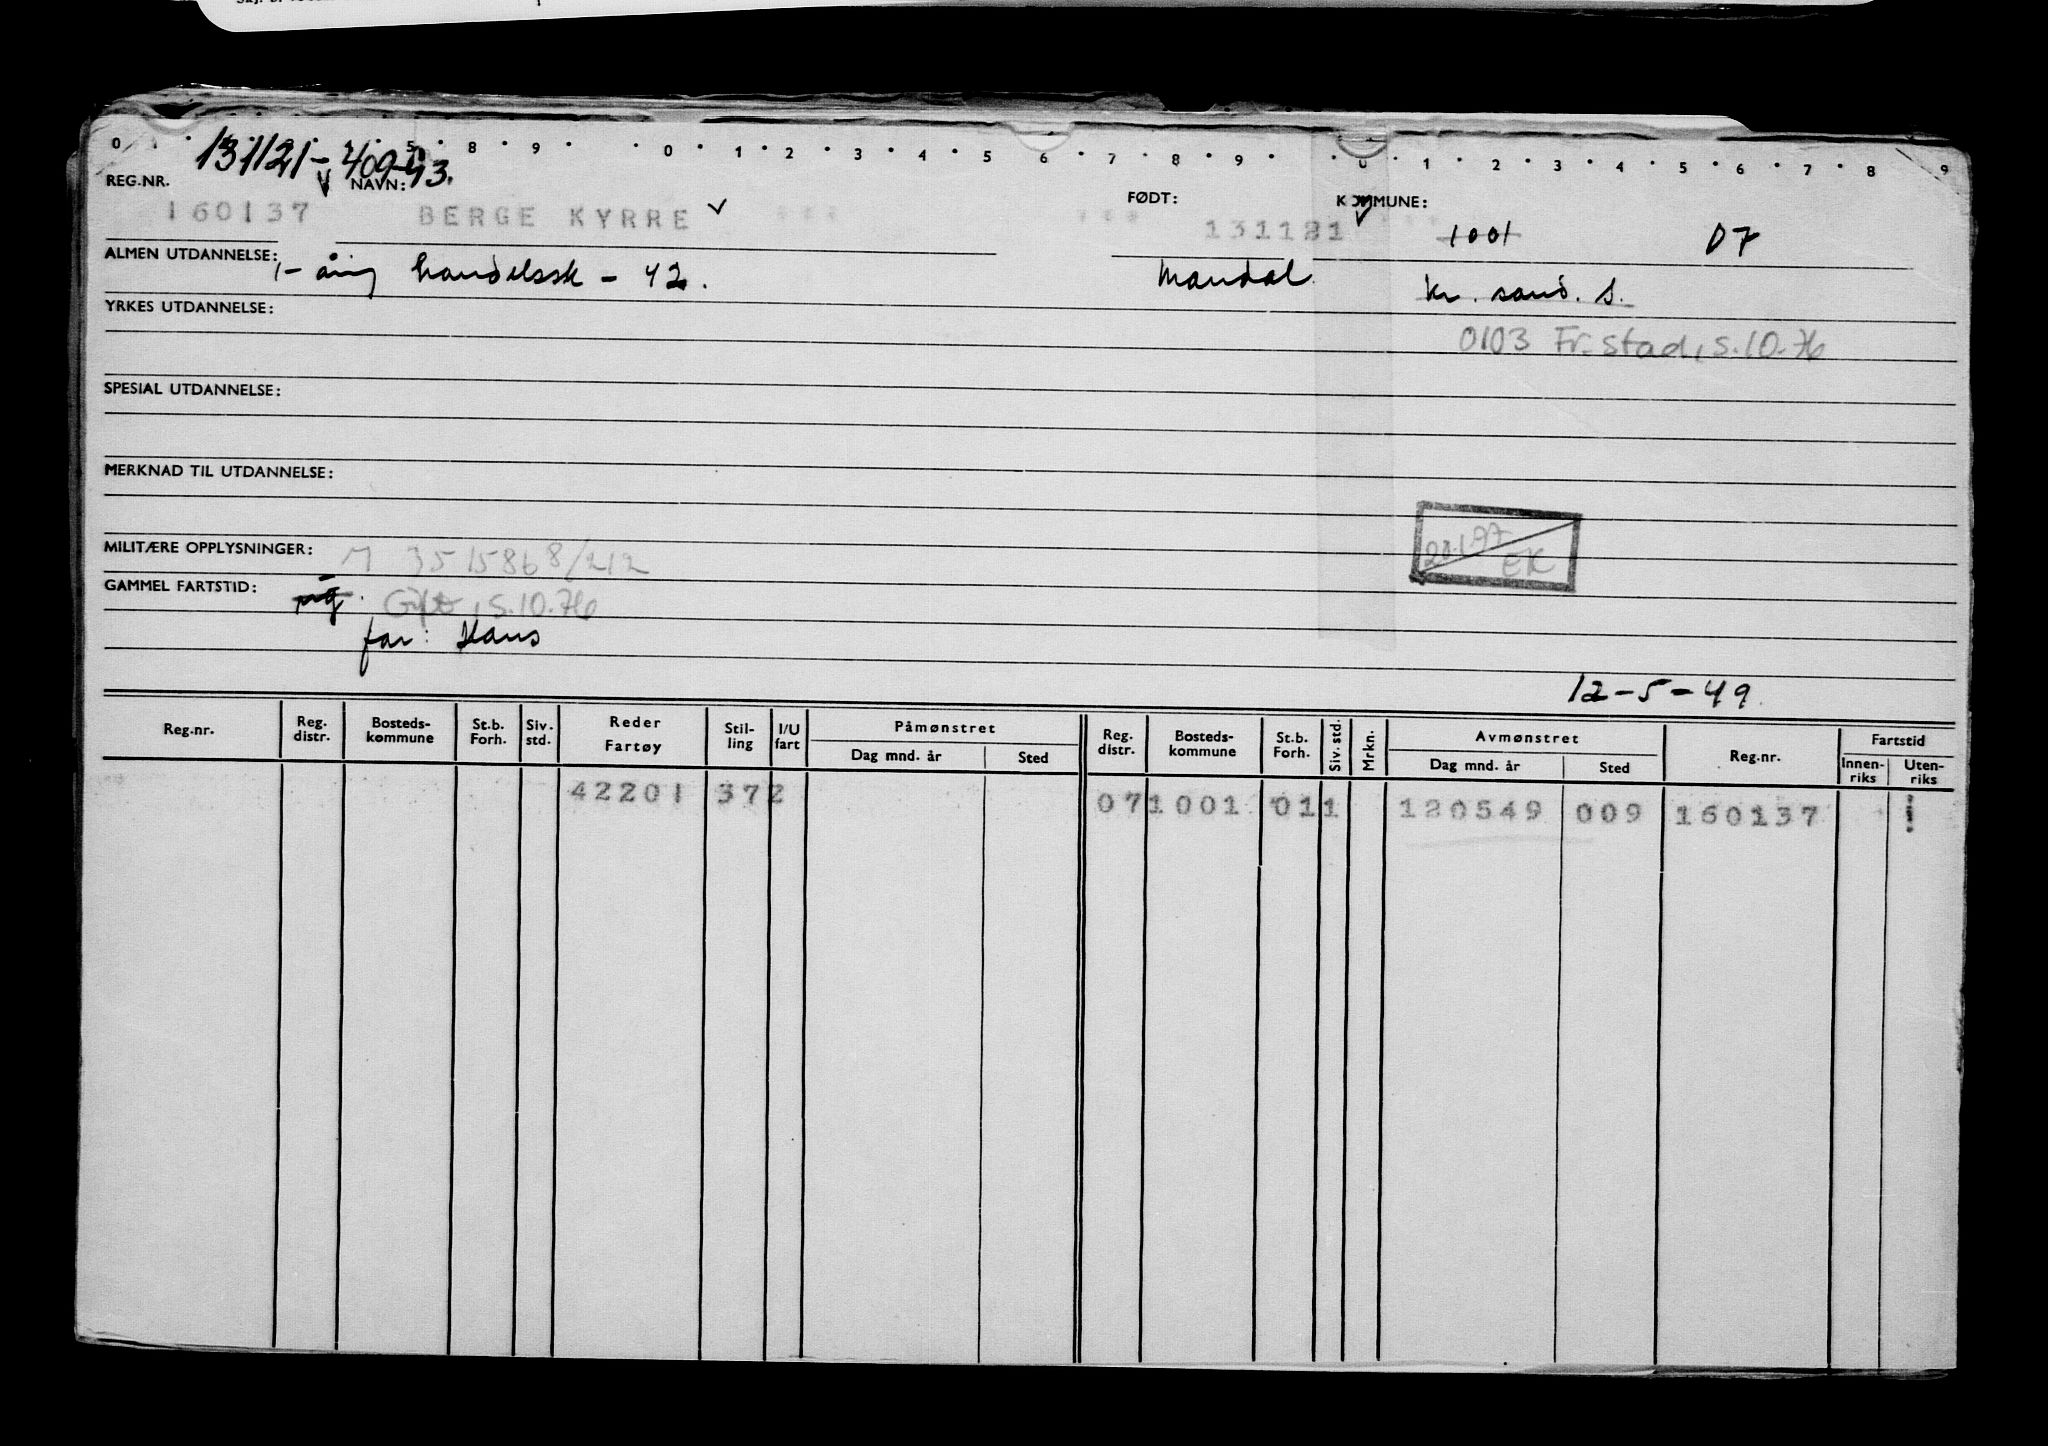 131121-40943.
REG.NR. NAVN: FØDT: KOMMUNE:
160137 BERGE KYRRE 131121 1001 07
ALMEN UTDANNELSE: 1-årig handelssk - 42. Mandal Kr. sand. S.
YRKES UTDANNELSE:
0103 Fr.stad, s.10.76
SPESIAL UTDANNELSE:
MERKNAD TIL UTDANNELSE:
20.1.97 EK
MILITÆRE OPPLYSNINGER: M 3515868/212
GAMMEL FARTSTID: ug. Gift, s.10.76
far: Hans
12-5-49
Reg.nr. Reg. distr. Bosteds-kommune St.b. Forh. Siv. std. Reder Fartøy Stil-ling I/U fart Påmønstret Dag mnd. år Sted Reg. distr. Bosteds-kommune St.b. Forh. Siv. std. Mrkn. Avmønstret Dag mnd. år Sted Reg.nr. Fartstid Innen-riks Uten-riks
42201 372 071001 011 120549 009 160137